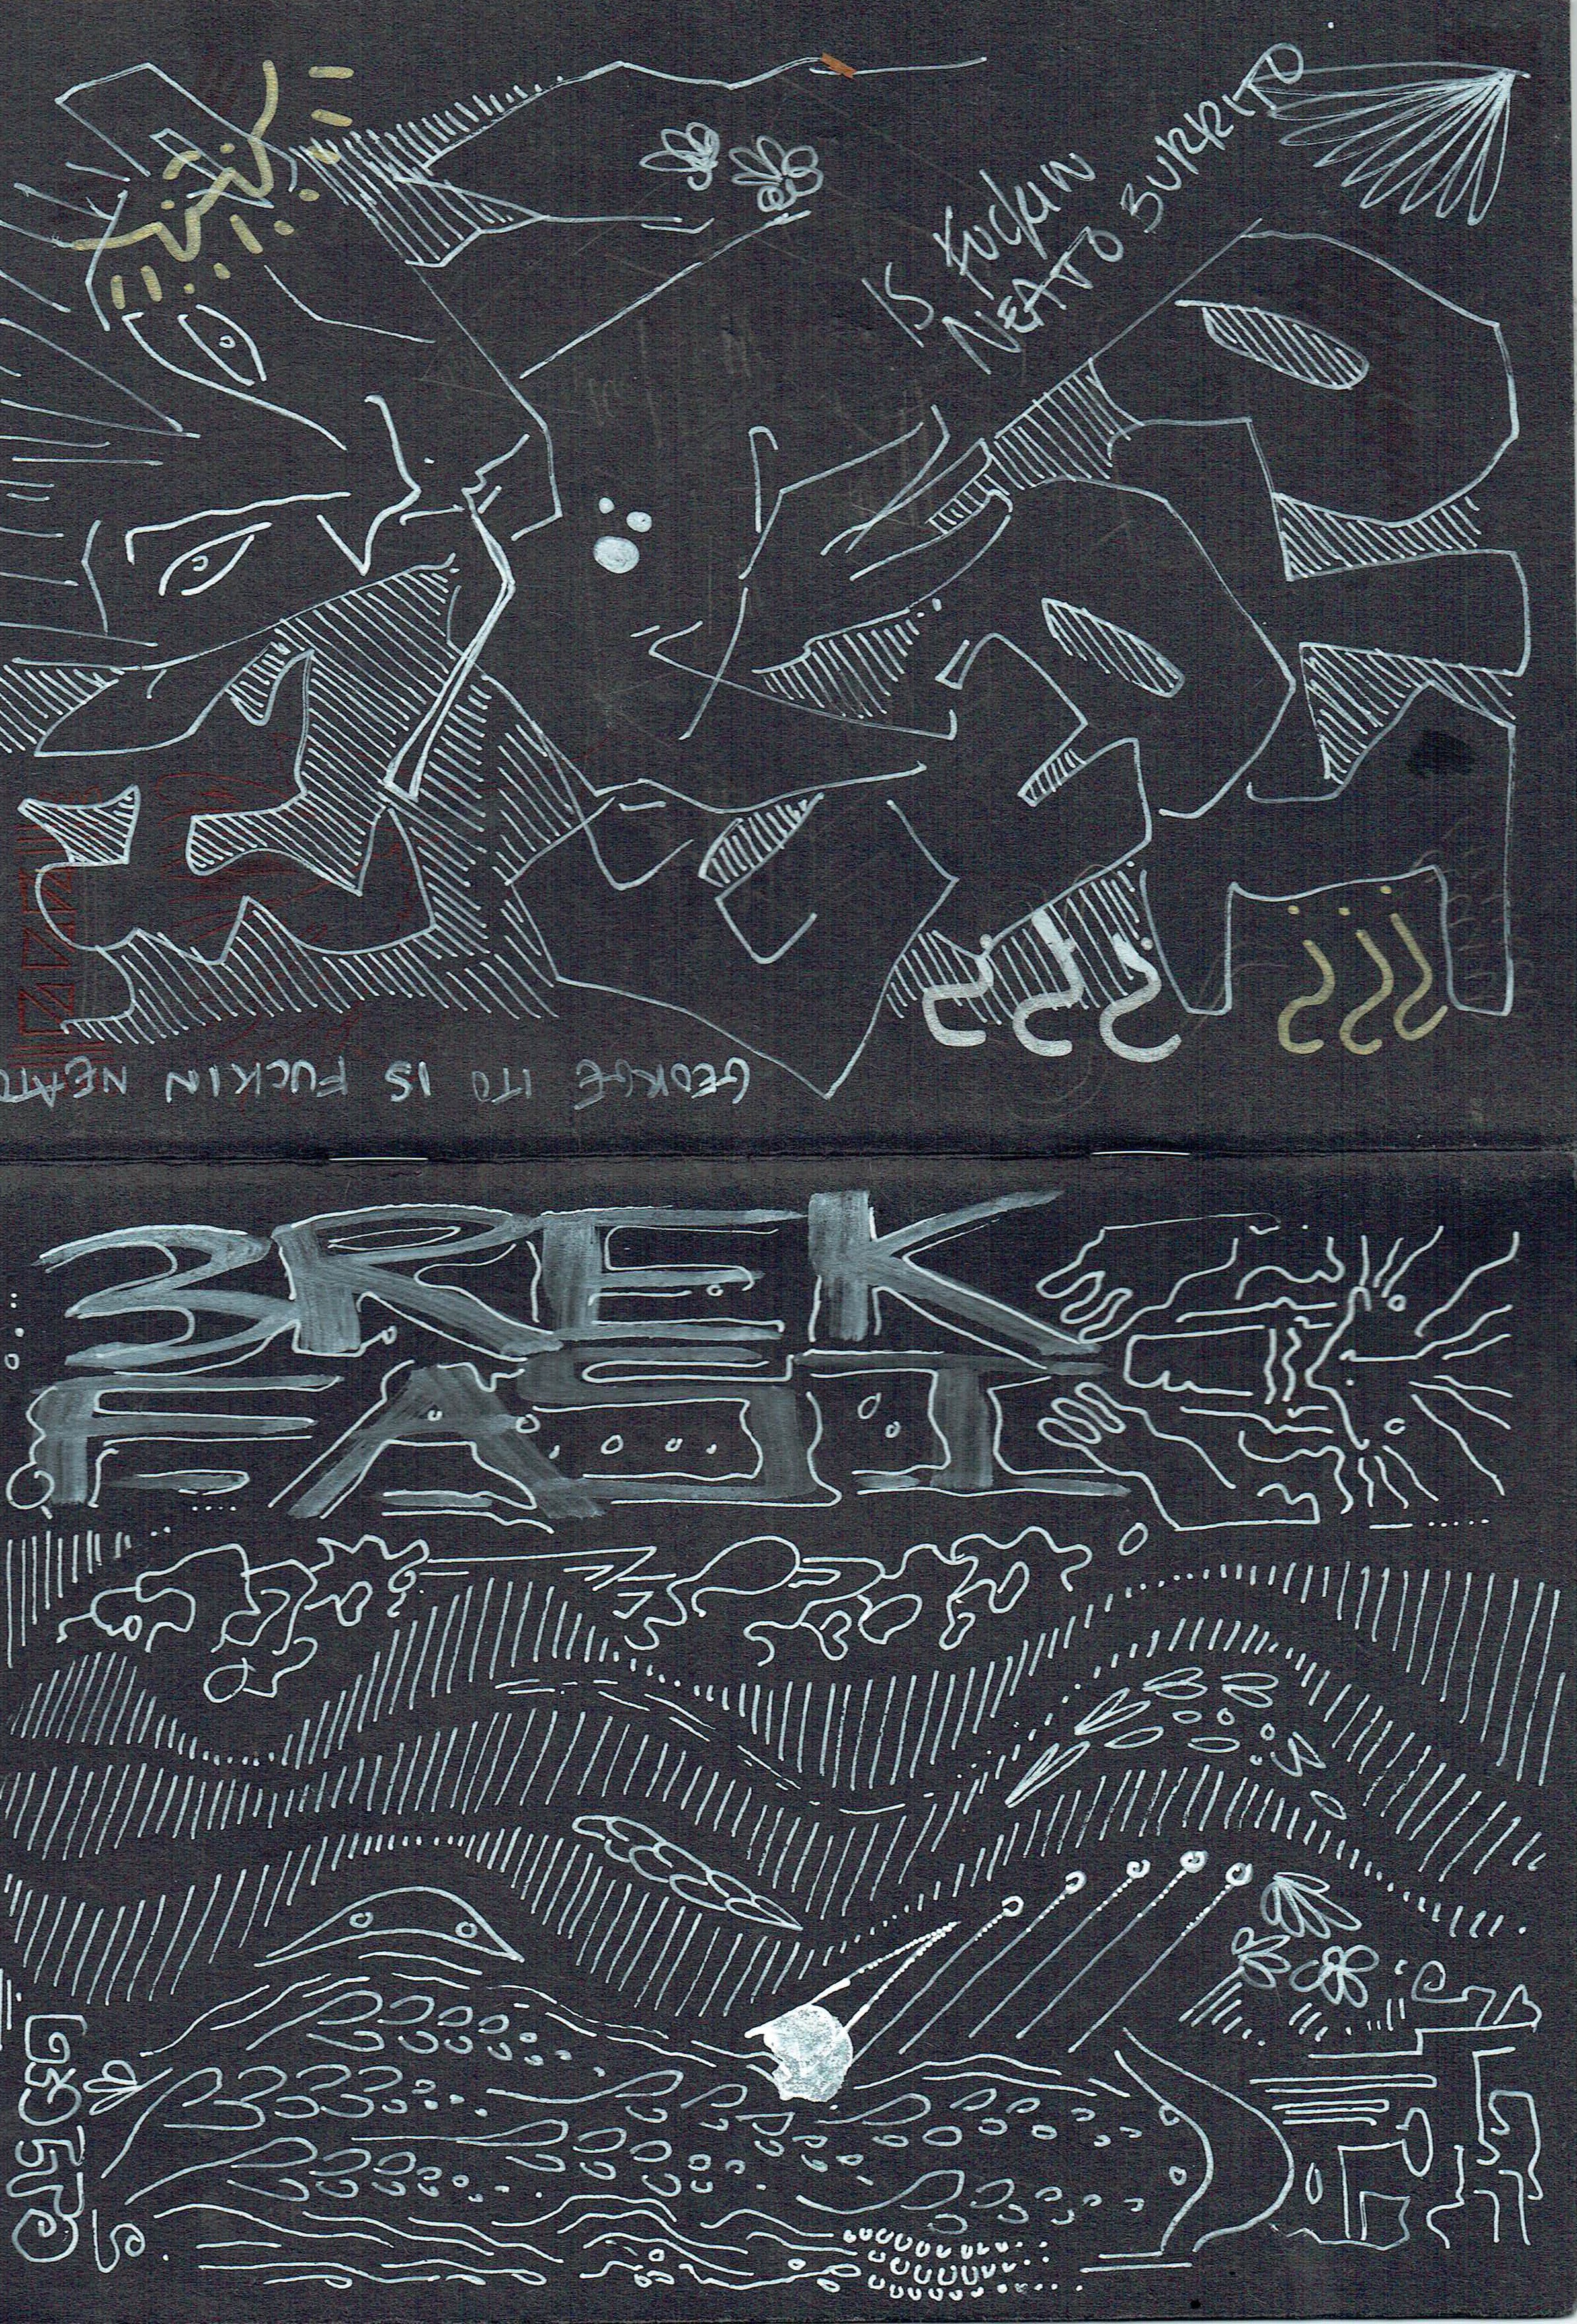 IS FUCKIN
NEATO BURRITO
GEORGE ITO IS FUCKIN NEATO
BREK
FAST